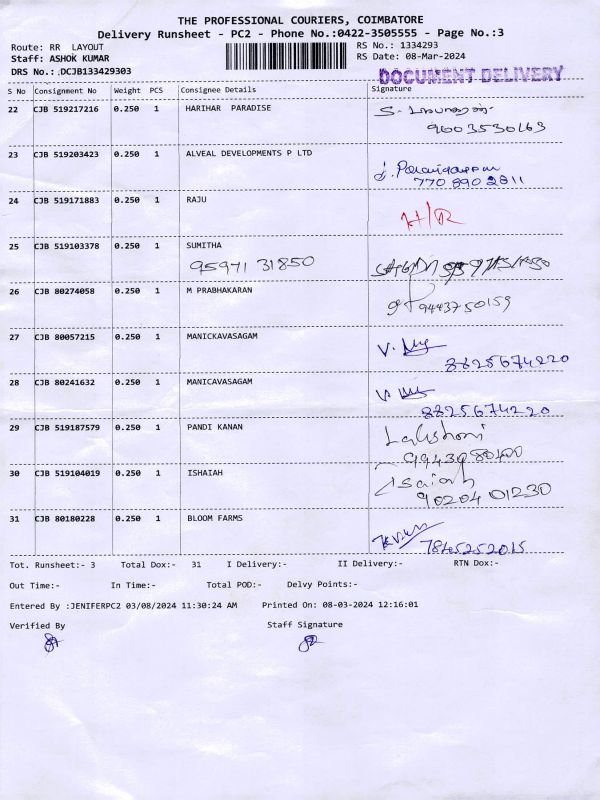 THE PROFESSIONAL COURIERS, COIMBATORE
Delivery Runsheet - PC2 - Phone No.:0422-3505555 - Page No.:3
Route: RR LAYOUT RS No.: 1334293
Staff: ASHOK KUMAR RS Date: 08-Mar-2024
DRS No.: DCJB133429303 DOCUMENT DELIVERY
S No Consignment No Weight PCS Consignee Details Signature
22 CJB 519217216 0.250 1 HARIHAR PARADISE
9603530163
23 CJB 519203423 0.250 1 ALVEAL DEVELOPMENTS P LTD
770 890 2811
24 CJB 519171883 0.250 1 RAJU H/R
25 CJB 519103378 0.250 1 SUMITHA
95971 31850
26 CJB 80274058 0.250 1 M PRABHAKARAN
9443750159
27 CJB 80057215 0.250 1 MANICKAVASAGAM
8825674220
28 CJB 80241632 0.250 1 MANICAVASAGAM
8825674220
29 CJB 519187579 0.250 1 PANDI KANAN
30 CJB 519104019 0.250 1 ISHAIAH Isaiah
90204 01230
31 CJB 80180228 0.250 1 BLOOM FARMS
7845252015
Tot. Runsheet:- 3 Total Dox:- 31 I Delivery:- II Delivery:- RTN Dox:-
Out Time:- In Time:- Total POD:- Delvy Points:-
Entered By :JENIFERPC2 03/08/2024 11:30:24 AM Printed On: 08-03-2024 12:16:01
Verified By Staff Signature